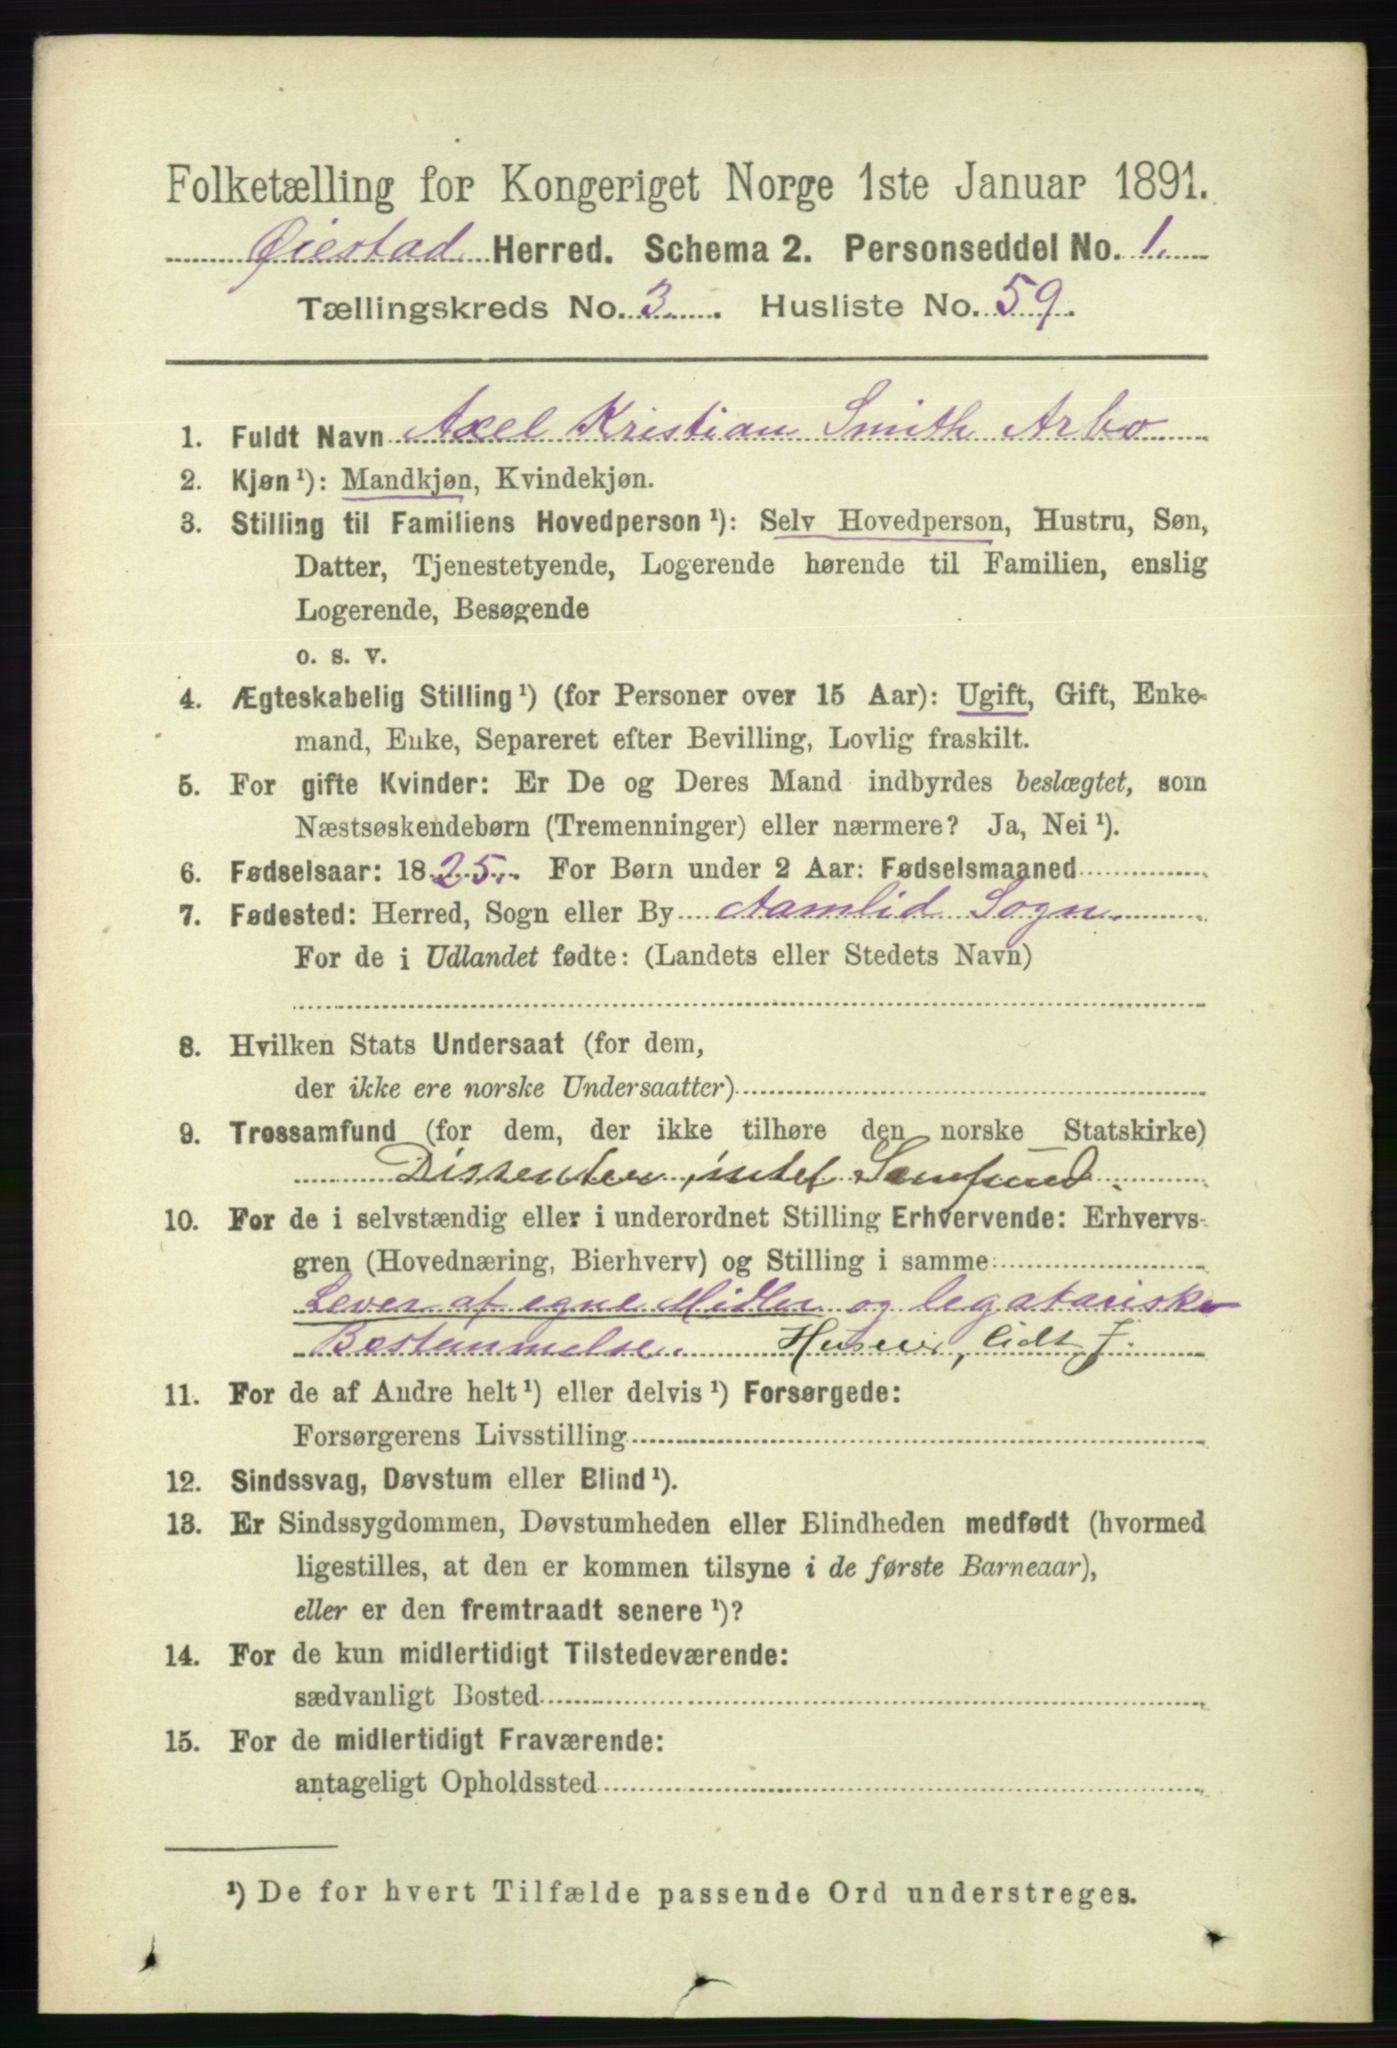 Folketælling for Kongeriget Norge 1ste Januar 1891.
Øiestad Herred. Schema 2. Personseddel No. 1.
Tællingskreds No. 3. Husliste No. 59.
1. Fuldt Navn Axel Kristian Smith Arbo
2. Kjøn¹): Mandkjøn, Kvindekjøn.
3. Stilling til Familiens Hovedperson¹): Selv Hovedperson, Hustru, Søn,
Datter, Tjenestetyende, Logerende hørende til Familien, enslig
Logerende, Besøgende
o. s. v.
4. Ægteskabelig Stilling¹) (for Personer over 15 Aar): Ugift, Gift, Enke-
mand, Enke, Separeret efter Bevilling, Lovlig fraskilt.
5. For gifte Kvinder: Er De og Deres Mand indbyrdes beslægtet, som
Næstsøskendebørn (Tremenninger) eller nærmere? Ja, Nei¹).
6. Fødselsaar: 1825. For Børn under 2 Aar: Fødselsmaaned
7. Fødested: Herred, Sogn eller By Aamlid Sogn.
For de i Udlandet fødte: (Landets eller Stedets Navn)
8. Hvilken Stats Undersaat (for dem,
der ikke ere norske Undersaatter)
9. Trossamfund (for dem, der ikke tilhøre den norske Statskirke)
Dissenter, intet Samfund.
10. For de i selvstændig eller i underordnet Stilling Erhvervende: Erhvervs-
gren (Hovednæring, Bierhverv) og Stilling i samme
Lever af egne Midler og legatariske
Bestemmelser. Huseier, lidt J.
11. For de af Andre helt¹) eller delvis¹) Forsørgede:
Forsørgerens Livsstilling
12. Sindssvag, Døvstum eller Blind¹).
13. Er Sindssygdommen, Døvstumheden eller Blindheden medfødt (hvormed
ligestilles, at den er kommen tilsyne i de første Barneaar),
eller er den fremtraadt senere¹)?
14. For de kun midlertidigt Tilstedeværende:
sædvanligt Bosted
15. For de midlertidigt Fraværende:
antageligt Opholdssted
¹) De for hvert Tilfælde passende Ord understreges.